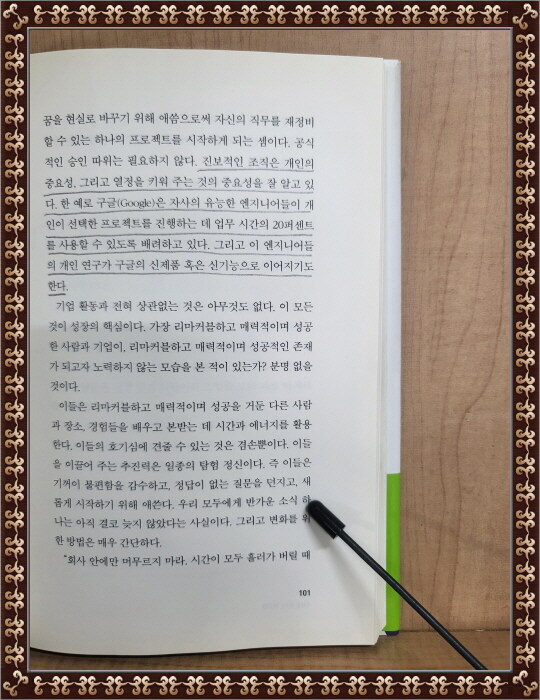 꿈을 현실로 바꾸기 위해 애씀으로써 자신의 직무를 재정비
할 수 있는 하나의 프로젝트를 시작하게 되는 셈이다. 공식
적인 승인 따위는 필요하지 않다. 진보적인 조직은 개인의
중요성, 그리고 열정을 키워 주는 것의 중요성을 잘 알고 있
다. 한 예로 구글(Google)은 자사의 유능한 엔지니어들이 개
인이 선택한 프로젝트를 진행하는 데 업무 시간의 20퍼센트
를 사용할 수 있도록 배려하고 있다. 그리고 이 엔지니어들
의 개인 연구가 구글의 신제품 혹은 신기능으로 이어지기도
한다.
기업 활동과 전혀 상관없는 것은 아무것도 없다. 이 모든
것이 성장의 핵심이다. 가장 리마커블하고 매력적이며 성공
한 사람과 기업이, 리마커블하고 매력적이며 성공적인 존재
가 되고자 노력하지 않는 모습을 본 적이 있는가? 분명 없을
것이다.
이들은 리마커블하고 매력적이며 성공을 거둔 다른 사람
과 장소, 경험들을 배우고 본받는 데 시간과 에너지를 활용
한다. 이들의 호기심에 견줄 수 있는 것은 겸손뿐이다. 이들
을 이끌어 주는 추진력은 일종의 탐험 정신이다. 즉 이들은
기꺼이 불편함을 감수하고, 정답이 없는 질문을 던지고, 새
롭게 시작하기 위해 애쓴다. 우리 모두에게 반가운 소식 하
나는 아직 결코 늦지 않았다는 사실이다. 그리고 변화를 위
한 방법은 매우 간단하다.
“회사 안에만 머무르지 마라. 시간이 모두 흘러가 버릴 때
101